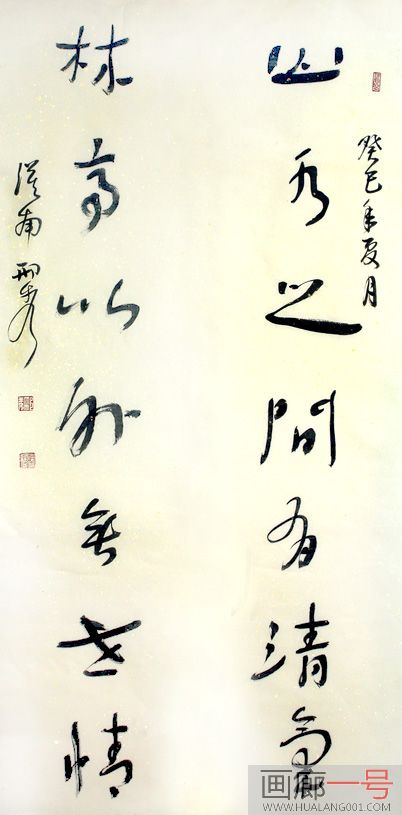 癸巳年夏月
山水之間有清
林亭以外無世情
画廊一号
WWW.HUALANG001.COM